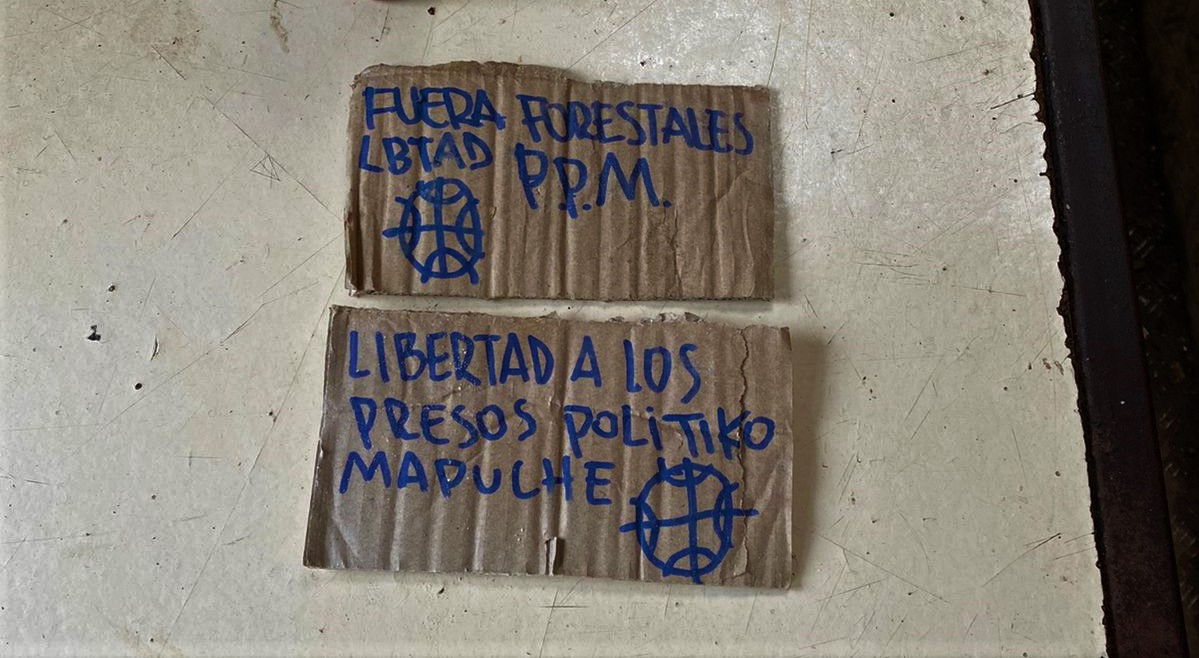 FUERA FORESTALES
LBTAD P.P.M.
LIBERTAD A LOS
PRESOS POLiTIKO
MAPUCHE